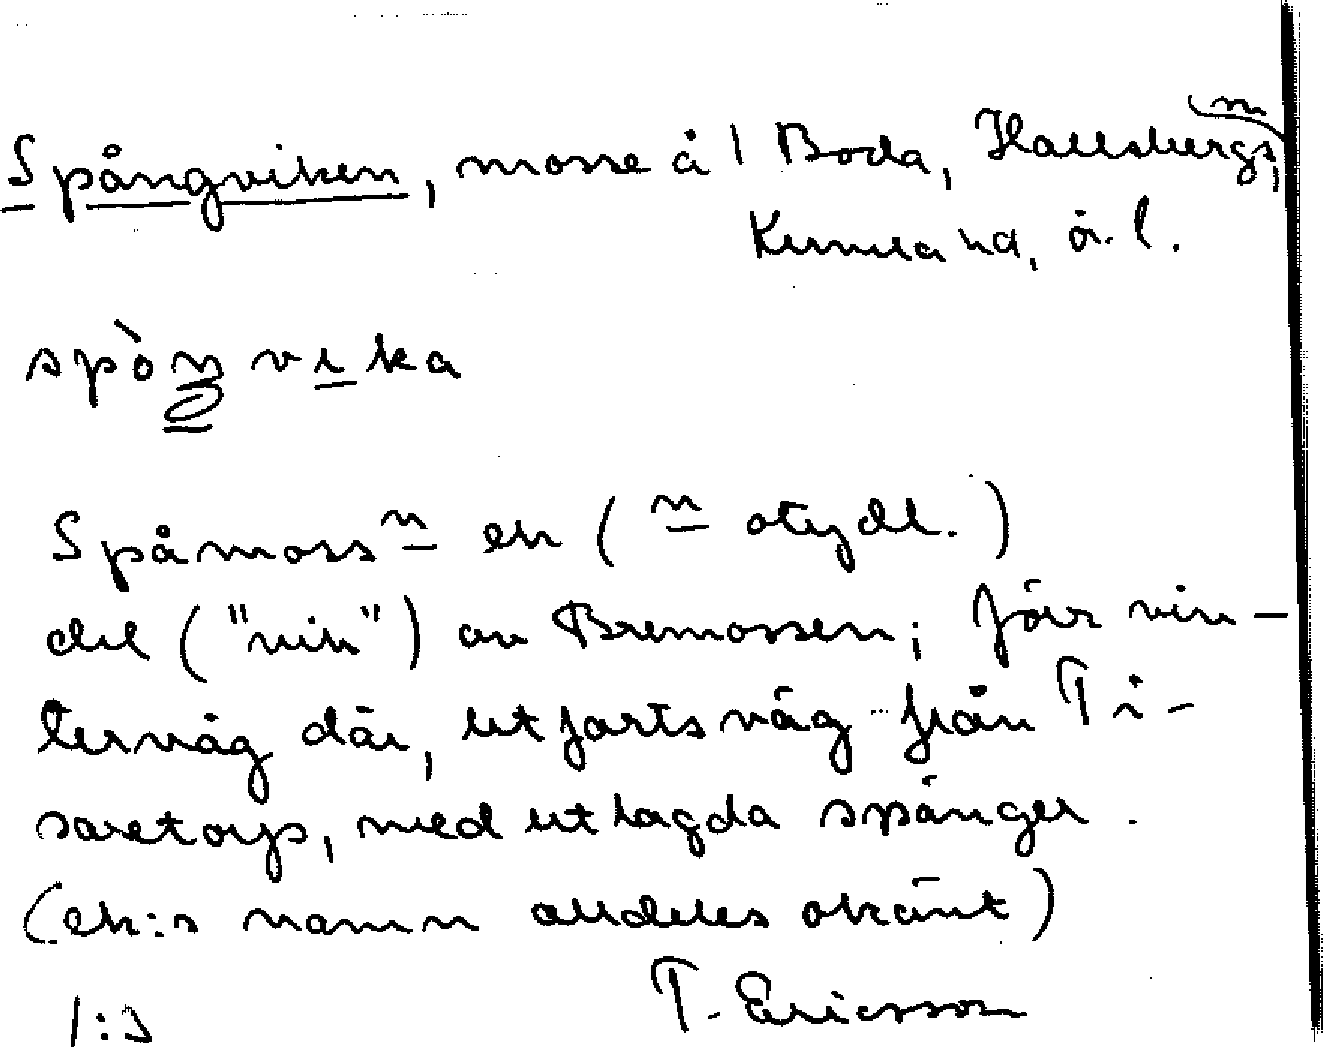 Spångviken, mosse å 1 Boda, Hallsbergs sn,
Kumla hd, ör. l.
spòŋvika
Spåmossn ek (n otydl.)
del ("vik") av Bremossen; förr vin-
terväg där, utfartsväg från Ti-
saretorp, med utlagda spänger.
(ek:s namn alldeles okänt)
1:3 T. Ericsson